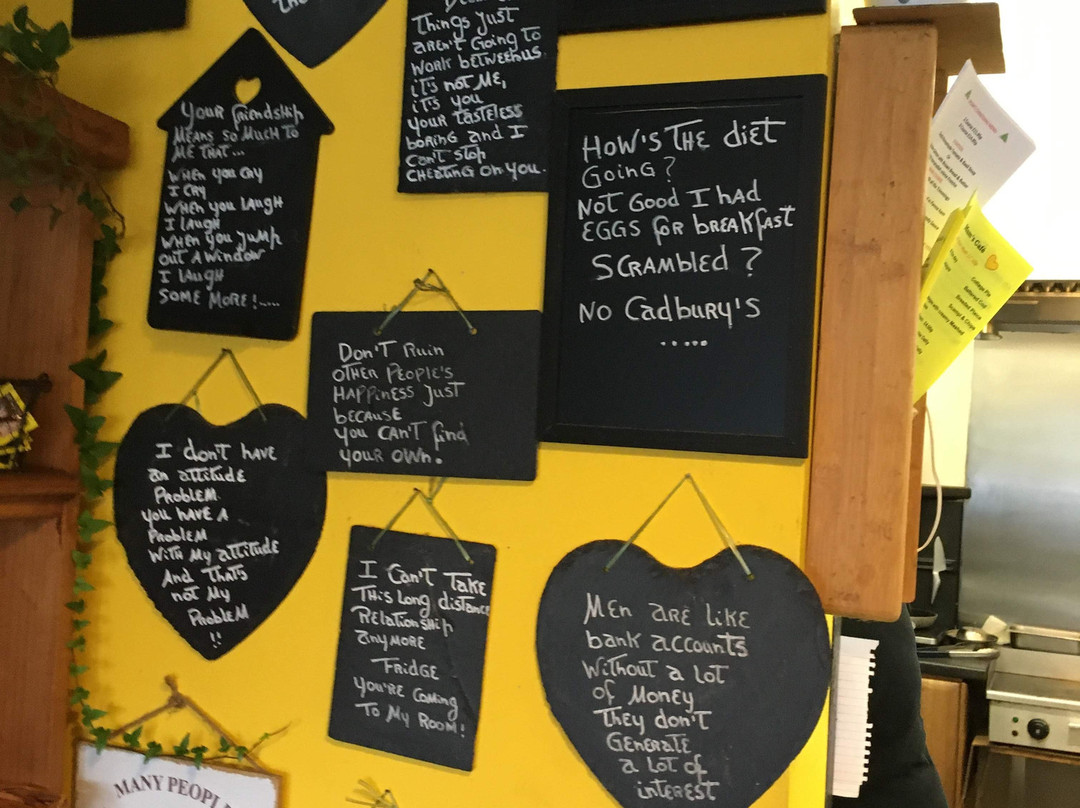 Things just
aren't Going to
work between us
it's not Me,
it's you
your tasteless
boring and I
Can't stop
cheating on you.
Your friendship
Means so much to
me that...
When you cry
I cry
When you laugh
I laugh
When you jump
out a window
I laugh
some more!.....
How's the diet
Going?
Not Good I had
Eggs for breakfast
Scrambled?
No Cadbury's
.....
Don't Ruin
Other People's
Happiness Just
because
you can't find
your own.
I don't have
an attitude
Problem.
you have a
Problem
With My attitude
And Thats
not My
Problem
!!
I Can't Take
This Long distance
Relationship
anymore
Fridge
You're Coming
To My Room!
Men are like
bank accounts
Without a lot
of Money
They don't
Generate
a lot of
interest
MANY PEOPL